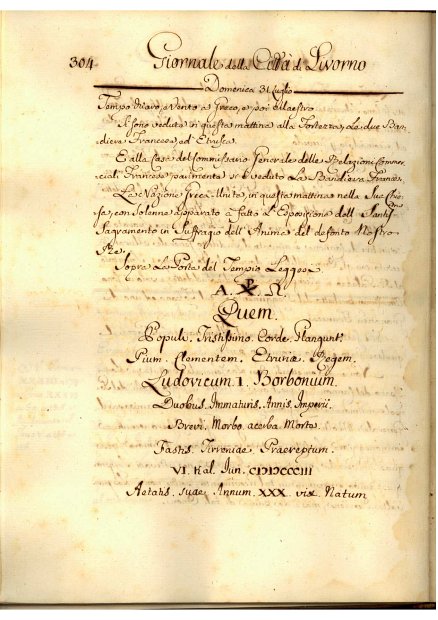 304. Giornale della Città di Livorno
Domenica 31 Luglio
Tempo vario, e Vento a Greco, e poi Maestro.
Si sono vedute in questa mattina alla Fortezza, Le due Ban-
diera Francese, ed Etrusca.
E alla Casa del Commissario Generale delle Relazioni Commer-
ciali Francese parimente si è veduto La Bandiera Francese
La Nazione Greca Unita, in questa mattina nella Sua Chie-
sa, con Solenne Apparato à fatto L'Esposizione dell Santiss.
Sagramento in Suffragio dell'Anima del defonto Nostro
Re.
Sopra La Porta del Tempio Leggesi.
A. R.
Quem.
Populi. Tristissimo. Corde. Plangunt.
Pium. Clementem. Etruriæ. Regem.
Ludovicum. I. Borbonium.
Duobus. Immaturis. Annis. Imperii.
Brevi. Morbo. acerba. Morte.
Fastis. Tirreniae. Praereptum.
VI. Kal. Jun. CIƆIƆCCCIII
Aetatis. suae. Annum. XXX. vix. Natum